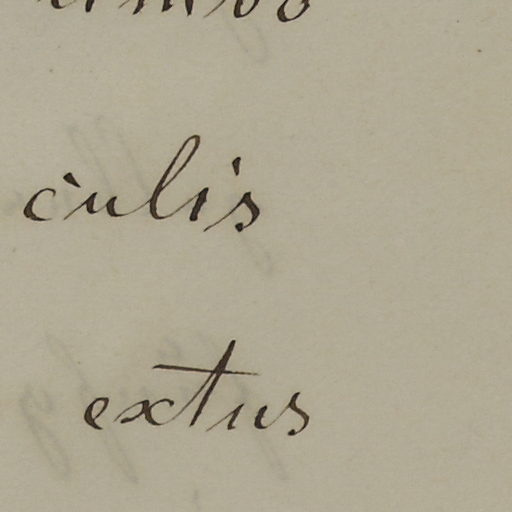 culis
extus